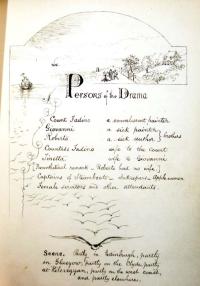 Persons of the Drama
Count Tadino a convalescent painter
Giovanni a sick painter
Roberto a sick author } brothers
Countess Tadino wife to the count
Ninetta wife to Giovanni
remark - Roberto had no wife
Captains of Steamboats - Innkeepers, Applewomen
Female servitors and other attendants.
Scene. Partly in Edinburgh, partly
in Glasgow, partly on the Clyde, partly
at partly on the west coast,
and partly elsewhere.